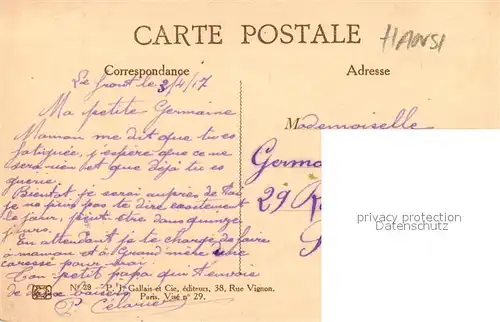 CARTE POSTALE
HANSI
Correspondance
Adresse
Le front le 3/4/17
Ma petite Germaine
Maman me dit que tu es
fatiguée, j'espère que ce ne
sera rien et que déjà tu es
guérie.
Bientôt je serai auprès de toi
je ne puis pas te dire exactement
le jour, peut-être dans quinze
jours.
En attendant je te charge de faire
à maman et à Grand'mère une
caresse pour moi.
Ton petit papa qui t'envoie
de doux baisers
P. Célarier
Mademoiselle
Germa
29 R
privacy protection
watermark
Nº 29 - P. J. Gallais et Cie, éditeurs, 38, Rue Vignon.
Paris. Visé nº 29.